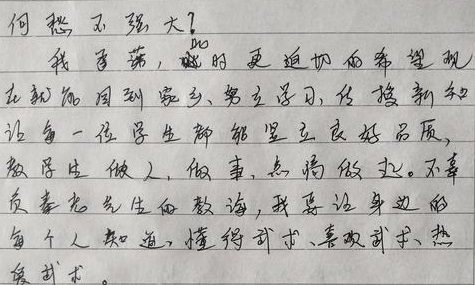 何愁不强大?
我承诺,此时更迫切的希望现
在就能回到家乡、努力学习,传授新知
让每一位学生都能坚立良好品质,
教学生做人,做事,点滴做起。不辜
负秦老先生的教诲,我要让身边的
每个人知道、懂得武术、喜欢武术、热
爱武术。